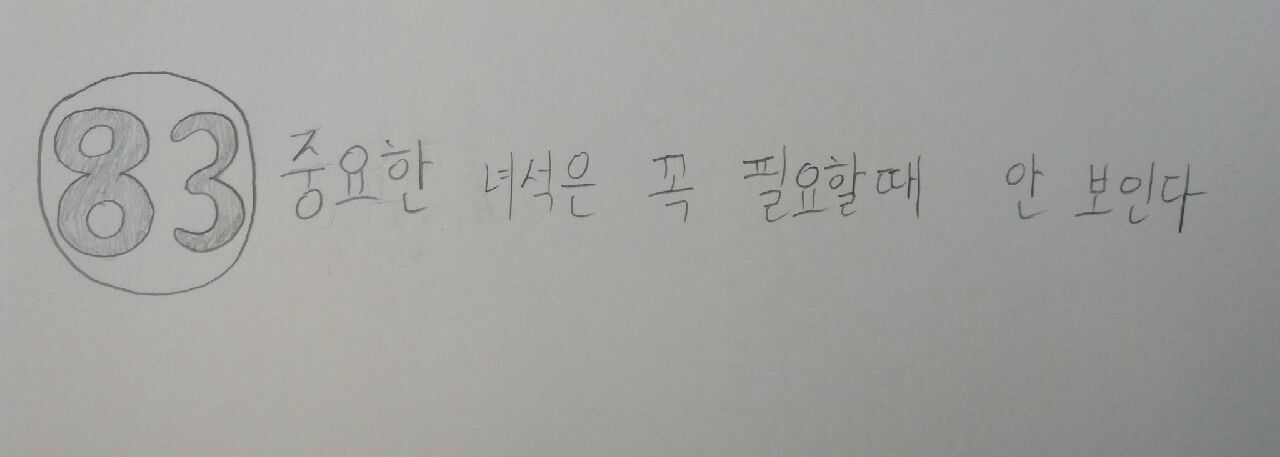 83 중요한 녀석은 꼭 필요할때 안 보인다